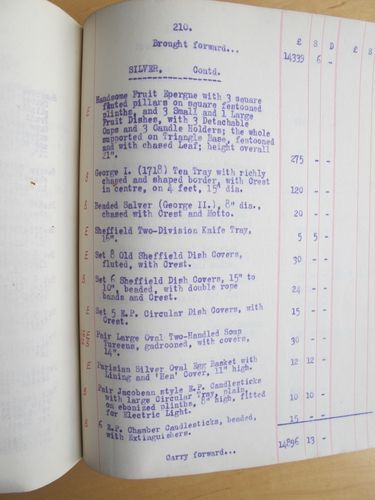 210.
£ S D £ S
Brought forward... 14339 6 -
SILVER, Contd.
E Handsome Fruit Epergne with 3 square
fluted pillars on square festooned
plinths, and 3 Small and 1 Large
Fruit Dishes, with 3 Detachable
Cups and 3 Candle Holders; the whole
supported on Triangle Base, festooned
and with chased Leaf; height overall
21". 275 - -
George I. (1718) Tea Tray with richly
chased and shaped border, with Crest
in centre, on 4 feet, 15" dia. 120 - -
Beaded Salver (George II.), 8" dia.,
chased with Crest and Motto. 20 - -
E Sheffield Two-Division Knife Tray,
16". 5 5 -
E Set 8 Old Sheffield Dish Covers,
fluted, with Crest. 30 - -
Set 6 Sheffield Dish Covers, 15" to
10", beaded, with double rope
bands and Crest. 24 - -
Set 5 E.P. Circular Dish Covers, with
Crest. 15 - -
Pair Large Oval Two-Handled Soup
Tureens, gadrooned, with covers,
14". 30 - -
E Parisian Silver Oval Egg Basket with
Lining and 'Hen' Cover, 11" high. 12 12 -
Pair Jacobean style E.P. Candlesticks
with large Circular Tray, plain,
on ebonized plinths, 8" high, fitted
for Electric Light. 10 10 -
6 E.P. Chamber Candlesticks, beaded,
with Extinguishers. 15 - -
14896 13 -
Carry forward...